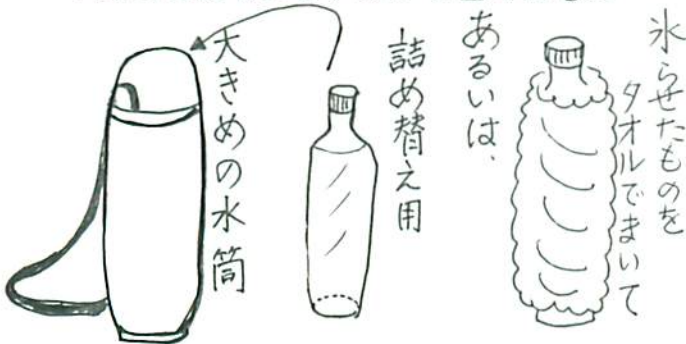 氷らせたものを
タオルでまいて
あるいは、
詰め替え用
大きめの水筒